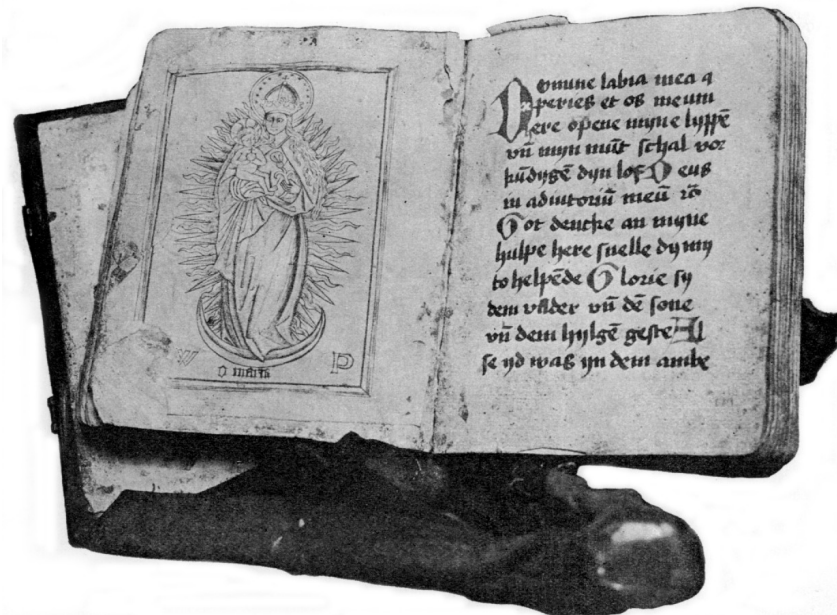 W
O maria
P
Domine labia mea a
peries et os meum
Here opene myne lyppē
vn̄ myn mūt schal vor
kūdygē dyn lof Deus
in adiutoriū meū
Got dencke an myne
hulpe here snelle dy my
to helpēde Glorie sy
dem vader vn̄ dē sone
vn̄ dem hylgē geste Al
se yd was yn dem anbe